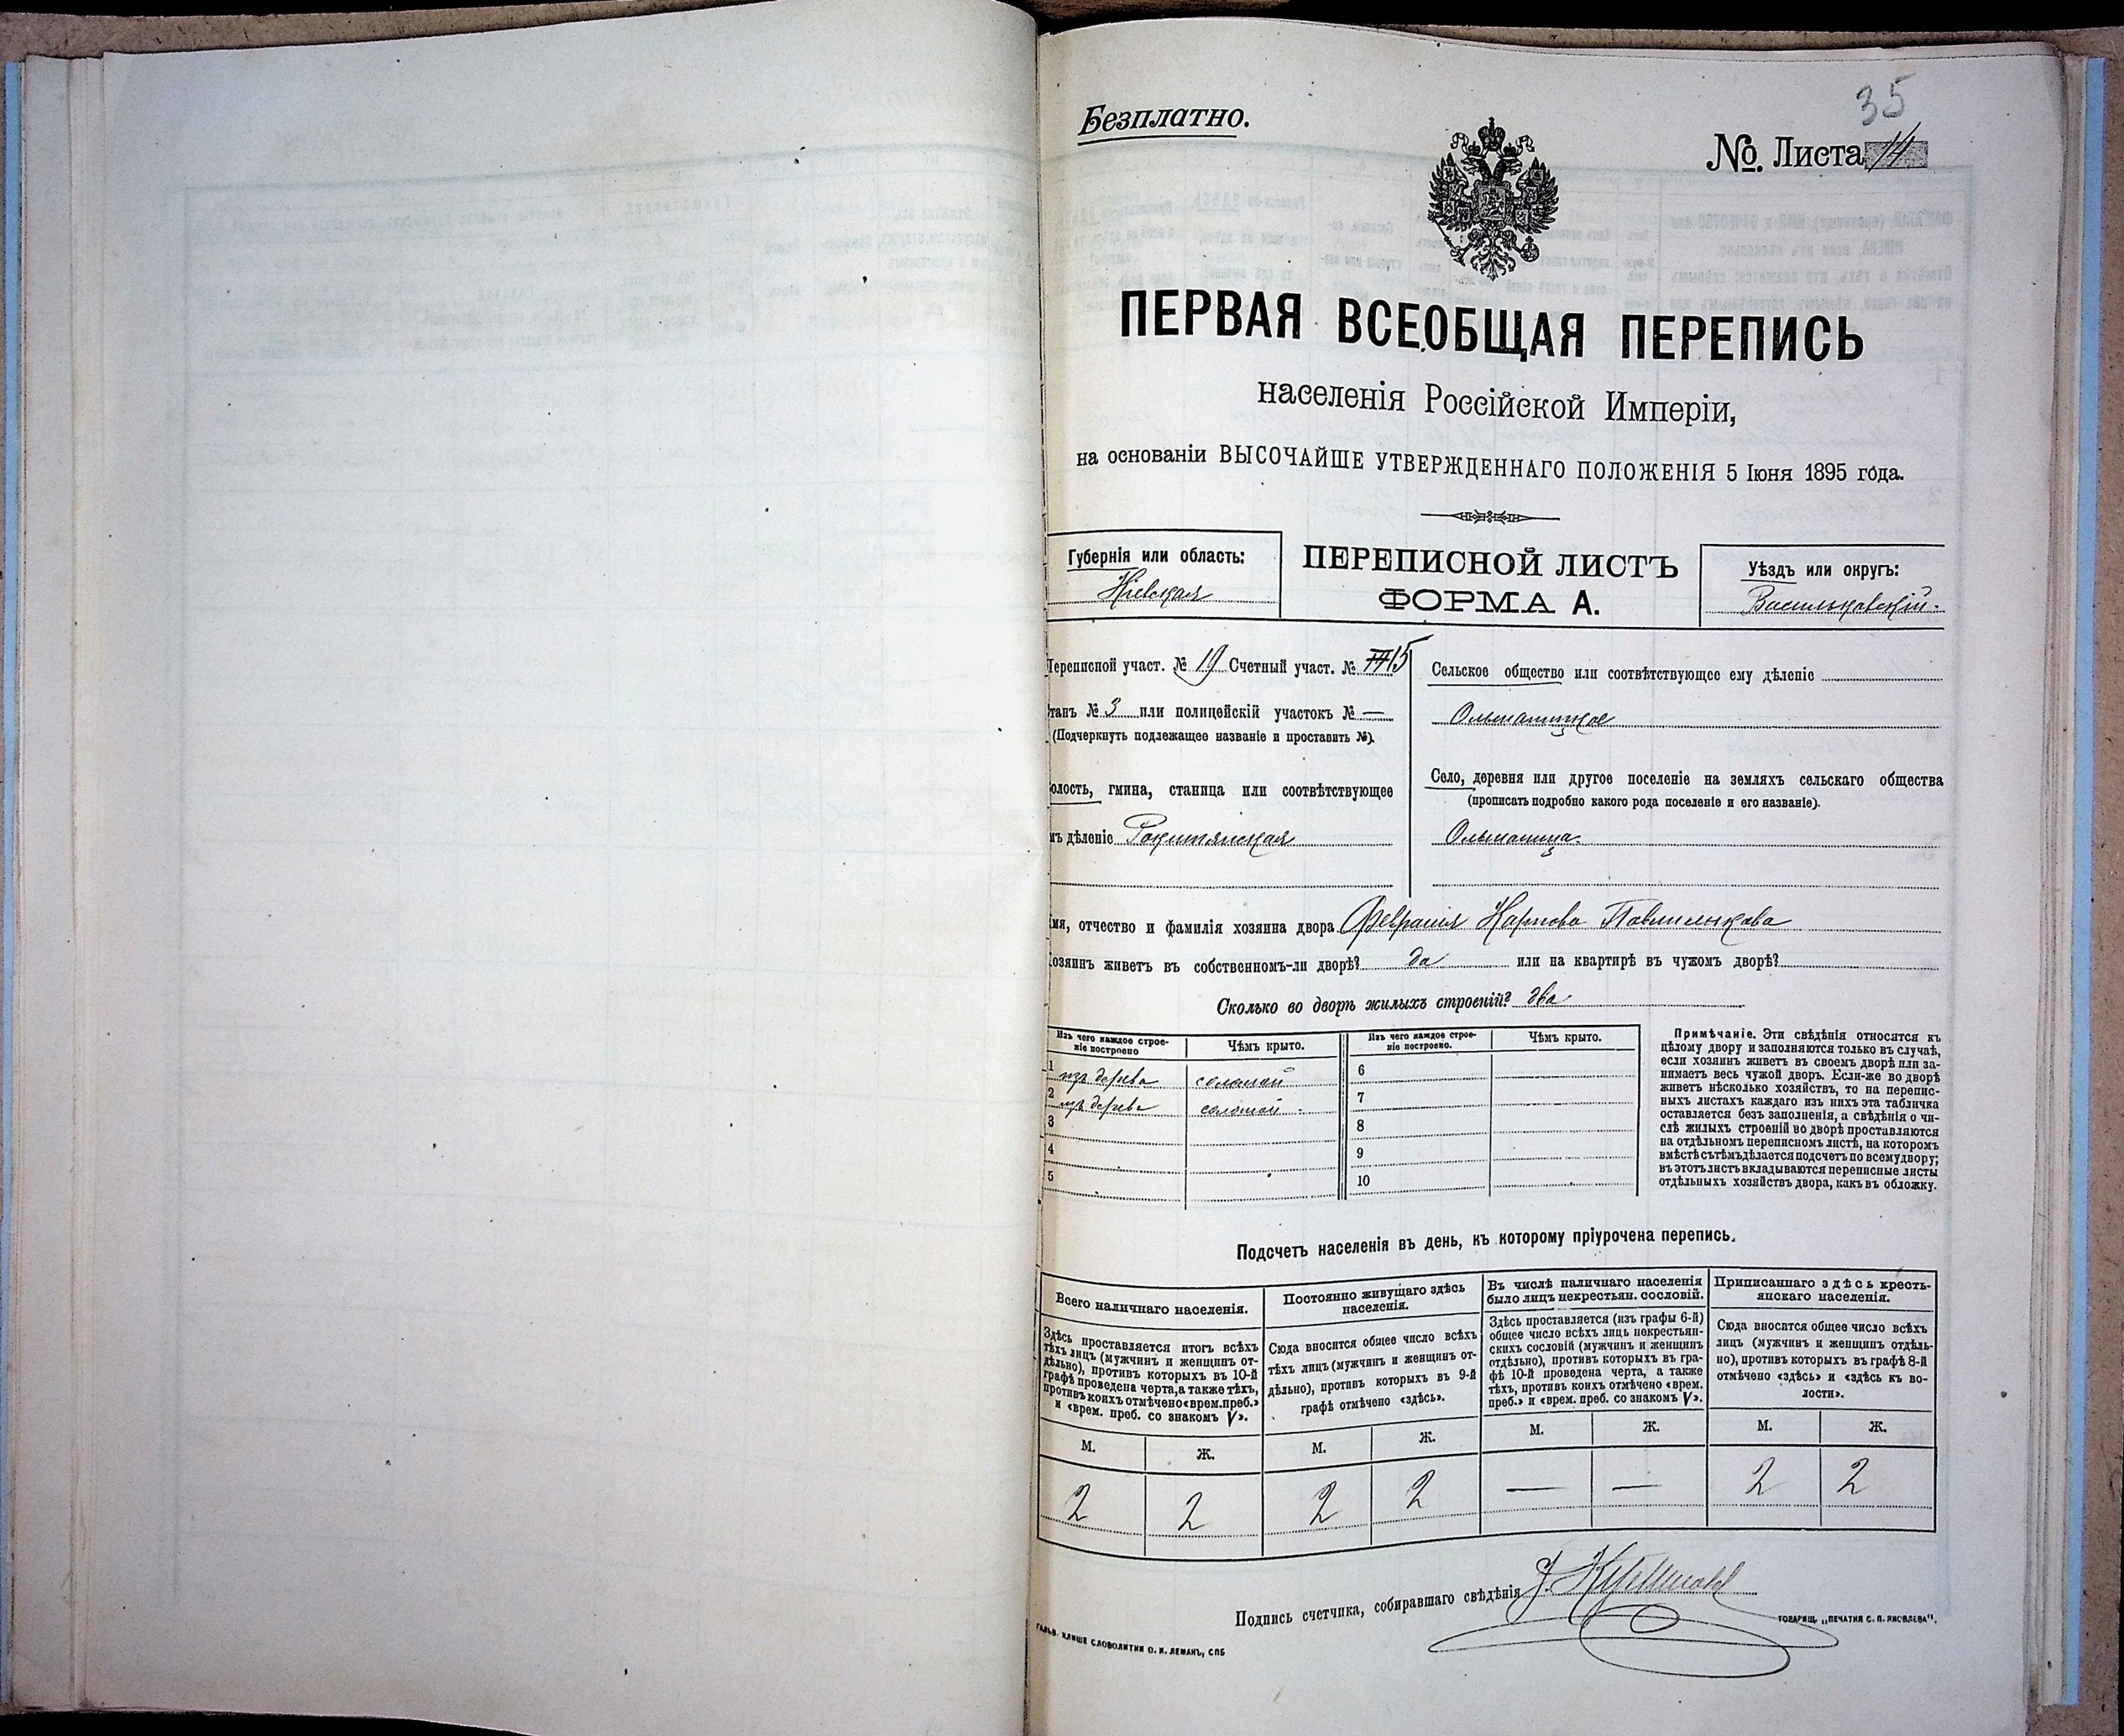 35
Безплатно.
№ Листа 14
ПЕРВАЯ ВСЕОБЩАЯ ПЕРЕПИСЬ
населенія Россійской Имперіи,
на основаніи ВЫСОЧАЙШЕ УТВЕРЖДЕННАГО ПОЛОЖЕНІЯ 5 Іюня 1895 года.
Губернія или область:
Кіевская
ПЕРЕПИСНОЙ ЛИСТЪ
ФОРМА А.
Уѣздъ или округъ:
Васильковскій.
Переписной участ. № 19 Счетный участ. № 15
танъ № 3 или полицейскій участокъ № —
(Подчеркнуть подлежащее названіе и проставить №).
олость, гмина, станица или соотвѣтствующее
мъ дѣленіе Рокитянская
Сельское общество или соотвѣтствующее ему дѣленіе
Ольшаницкое
Село, деревня или другое поселеніе на земляхъ сельскаго общества
(прописать подробно какого рода поселеніе и его названіе).
Ольшаница.
мя, отчество и фамилія хозяина двора Февронія Карпова Павличенкова
озяинъ живетъ въ собственномъ-ли дворѣ? да или на квартирѣ въ чужомъ дворѣ?
Сколько во дворѣ жилыхъ строеній? два
Изъ чего каждое строе-
ніе построено
Чѣмъ крыто.
Изъ чего каждое строе-
ніе построено.
Чѣмъ крыто.
1 изъ дерева соломой 6
2 изъ дерева соломой 7
3 8
4 9
5 10
Примѣчаніе. Эти свѣдѣнія относятся къ
цѣлому двору и заполняются только въ случаѣ,
если хозяинъ живетъ въ своемъ дворѣ или за-
нимаетъ весь чужой дворъ. Если-же во дворѣ
живетъ нѣсколько хозяйствъ, то на перепис-
ныхъ листахъ каждаго изъ нихъ эта табличка
оставляется безъ заполненія, а свѣдѣнія о чи-
слѣ жилыхъ строеній во дворѣ проставляются
на отдѣльномъ переписномъ листѣ, на которомъ
вмѣстѣ съ тѣмъ дѣлается подсчетъ по всему двору;
въ этотъ листъ вкладываются переписные листы
отдѣльныхъ хозяйствъ двора, какъ въ обложку.
Подсчетъ населенія въ день, къ которому пріурочена перепись.
Всего наличнаго населенія.
Здѣсь проставляется итогъ всѣхъ
тѣхъ лицъ (мужчинъ и женщинъ от-
дѣльно), противъ которыхъ въ 10-й
графѣ проведена черта, а также тѣхъ,
противъ коихъ отмѣчено «врем. преб.»
и «врем. преб. со знакомъ V».
Постоянно живущаго здѣсь
населенія.
Сюда вносится общее число всѣхъ
тѣхъ лицъ (мужчинъ и женщинъ от-
дѣльно), противъ которыхъ въ 9-й
графѣ отмѣчено «здѣсь».
Въ числѣ наличнаго населенія
было лицъ некрестьян. сословій.
Здѣсь проставляется (изъ графы 6-й)
общее число всѣхъ лицъ некрестьян-
скихъ сословій (мужчинъ и женщинъ
отдѣльно), противъ которыхъ въ гра-
фѣ 10-й проведена черта, а также
тѣхъ, противъ коихъ отмѣчено «врем.
преб.» и «врем. преб. со знакомъ V».
Приписаннаго здѣсь кресть-
янскаго населенія.
Сюда вносится общее число всѣхъ
лицъ (мужчинъ и женщинъ отдѣль-
но), противъ которыхъ въ графѣ 8-й
отмѣчено «здѣсь» и «здѣсь къ во-
лости».
М. Ж. М. Ж. М. Ж. М. Ж.
2 2 2 2 — — 2 2
Подпись счетчика, собиравшаго свѣдѣнія
ГАЛЬВ. КЛИШЕ СЛОВОЛИТНИ О. И. ЛЕМАНЪ, СПБ
ТОВАРИЩ. „ПЕЧАТНЯ С. П. ЯКОВЛЕВА".